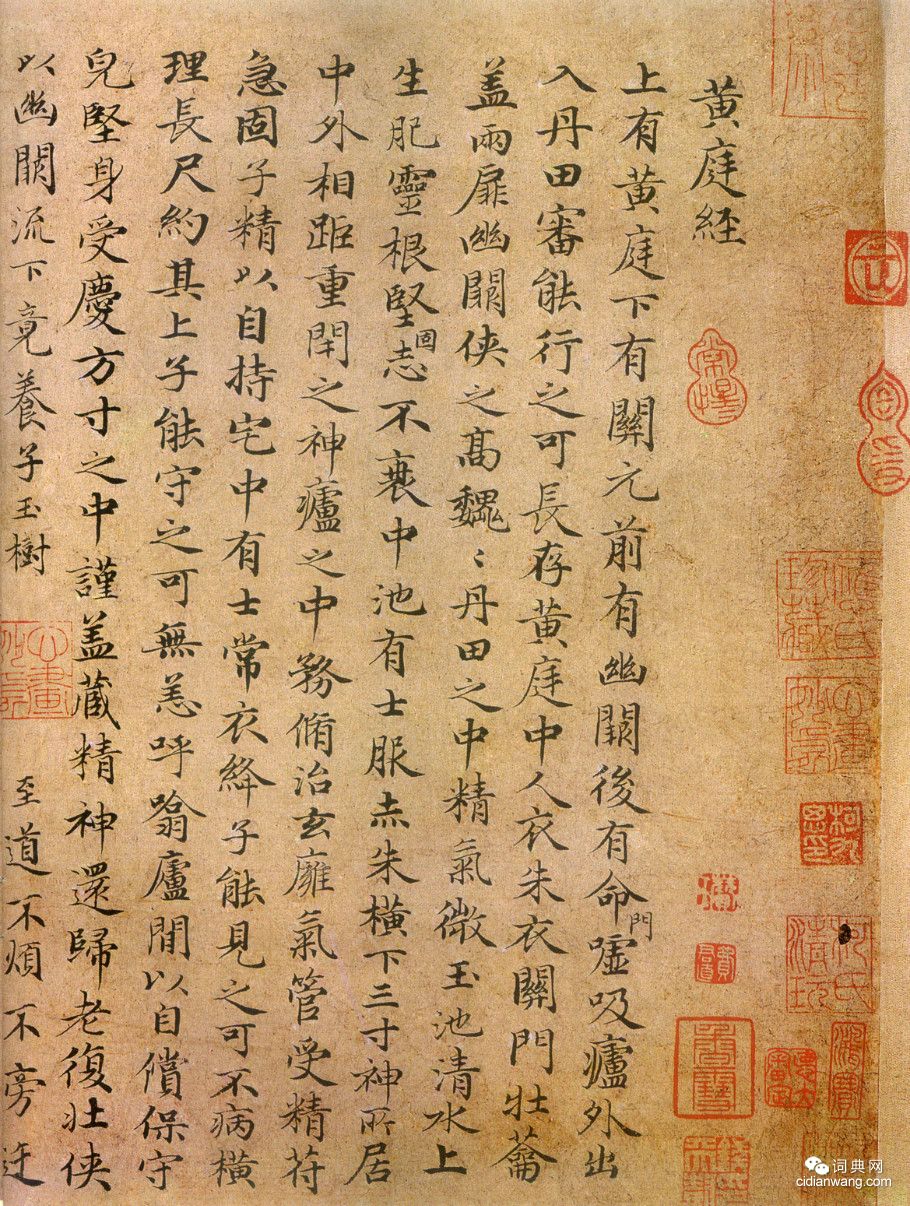 黃庭經
上有黃庭下有關元前有幽闕後有命門噓吸廬外出
入丹田審能行之可長存黃庭中人衣朱衣關門壯蘥
盖兩扉幽闕俠之髙巍〻丹田之中精氣微玉池清水上
生肥靈根堅固志不衰中池有士服赤朱橫下三寸神所居
中外相距重閇之神廬之中務脩治玄㢕氣管受精苻
急固子精以自持宅中有士常衣絳子能見之可不病橫
理長尺約其上子能守之可無恙呼噏廬閒以自償保守
皃堅身受慶方寸之中謹盖藏精神還歸老復壯俠
以幽闕流下竟養子玉樹 至道不煩不旁迕
词典网
cidianwang.com